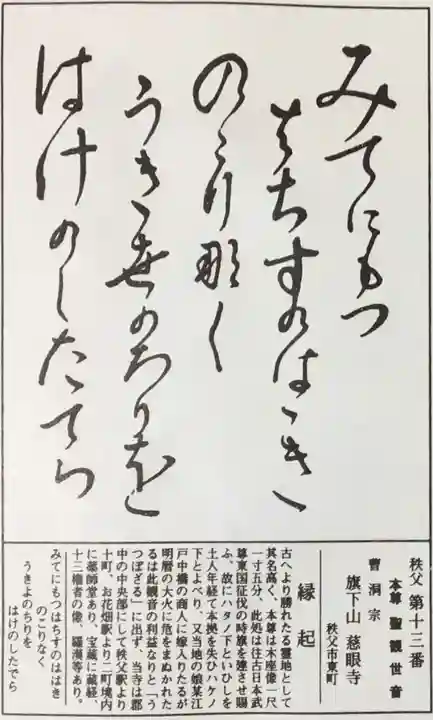 みてにもつ
はちすのはゝき
のこり那く
うき世のちりを
はけのしたてら
秩父 第十三番
本尊 聖観世音
曹洞宗
旗下山 慈眼寺
秩父市東町
縁起
古へより勝れたる霊地として
其名高く、本尊は木座像一尺
一寸五分、此処は往古日本武
尊東国征伐の時旗を建させ賜
ふ、故にハタノ下といひしを
土人年経て本拠を失ひハケノ
下とよべり、又当地の娘某江
戸中橋の商人に嫁入りたるが
明暦の大火に危をまぬかれた
るは此観音の利益なりと「う
つぼざる」に出ず、当寺は郡
中の中央部にして秩父駅より
十町、お花畑駅より二町境内
に薬師堂あり、宝蔵に蔵経、
十三権者の像、羅漢等あり。
みてにもつはちすのははき
のこりなく
うきよのちりを
はけのしたでら